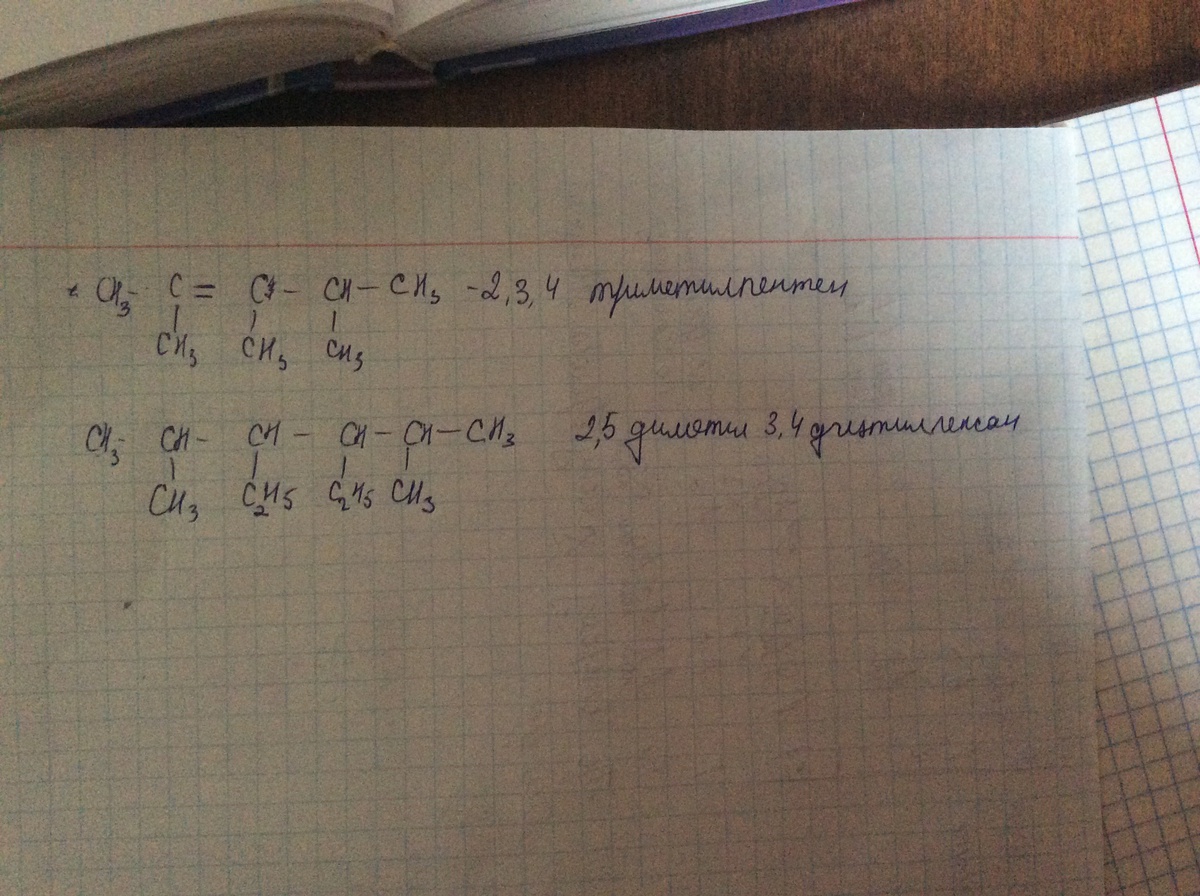 CH₃- C = C - CH - CH₃ - 2,3,4 триметилпентен
CH₃ CH₃ CH₃
CH₃- CH - CH - CH - CH - CH₃ 2,5 диметил 3,4 диэтилгексан
CH₃ C₂H₅ C₂H₅ CH₃